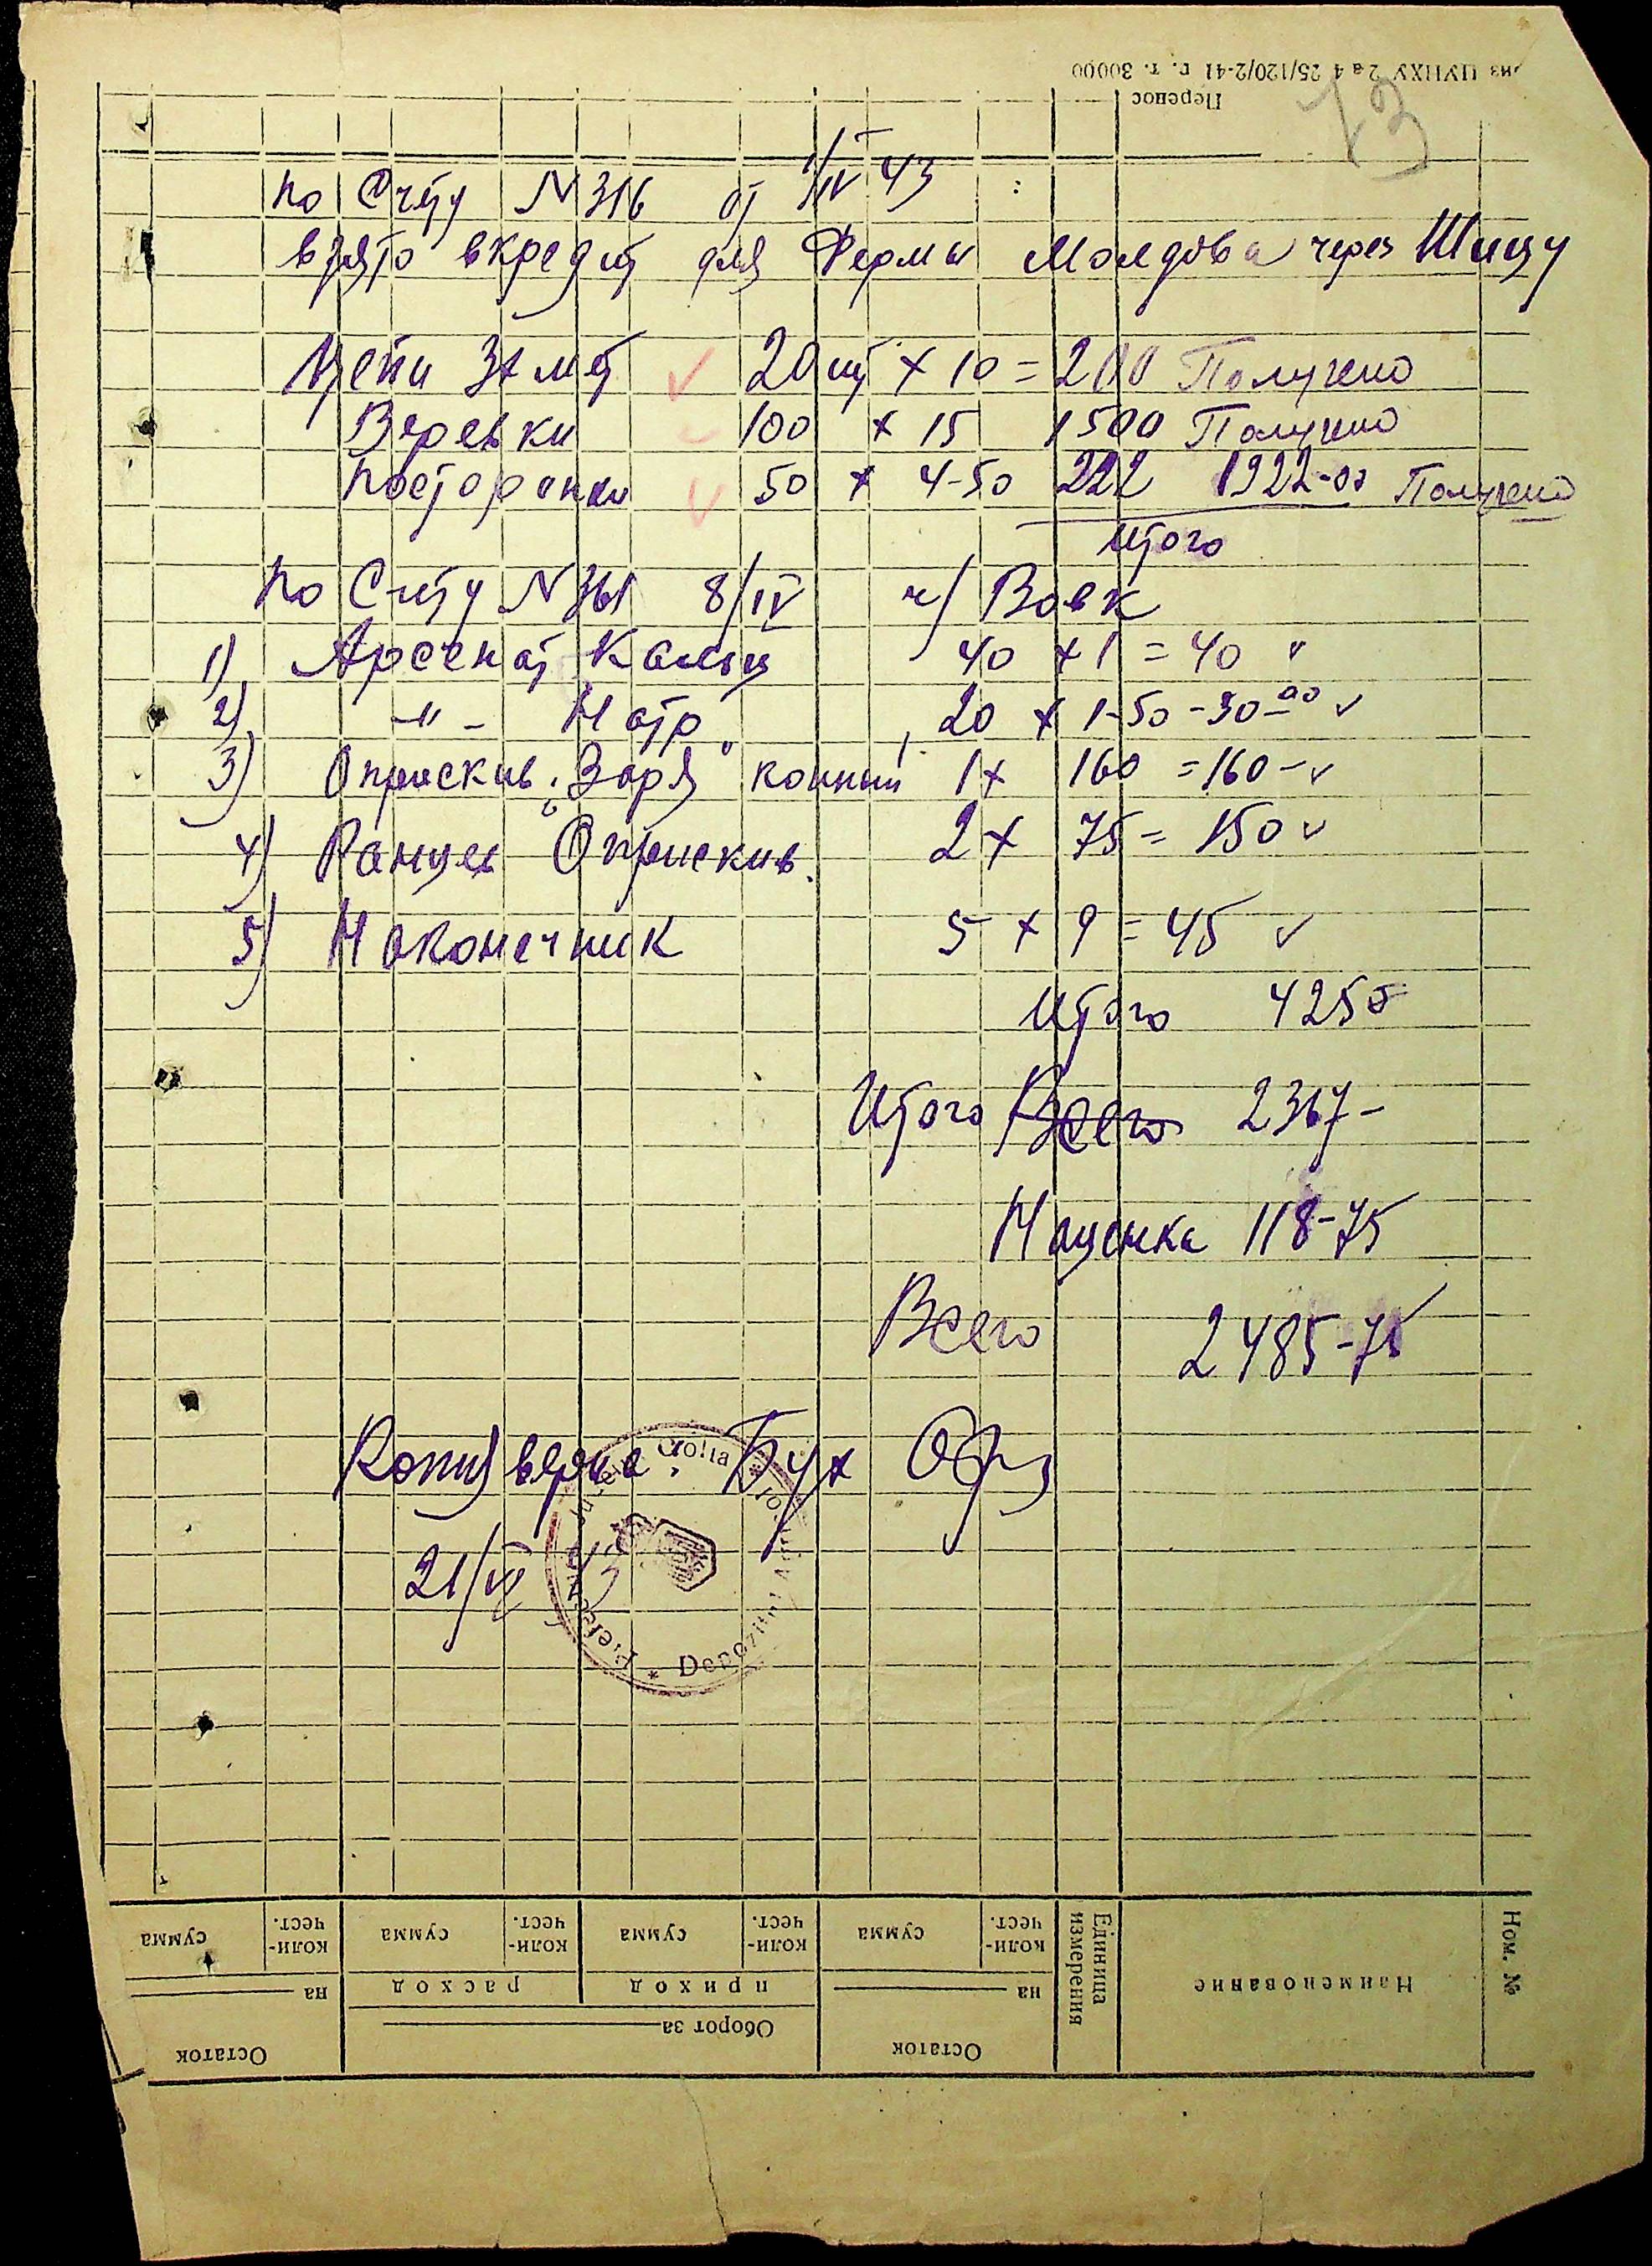 из ЦУНХУ 2а4 25/120/2-41 г. т. 30000
Перенос
13
по Счету N 316 от 1/IV 43
взято в кредит для Фермы Молдова через Шишу
Цепи 3х мет 20 шт x 10 = 200 Получено
Веревки 100 x 15 1500 Получено
Посторонки 50 x 4-50 222 1922-00 Получено
Итого
по Счету N 361 8/IV ч/ Вовк
1) Арсенат Кальц 40 x 1 = 40
2) -"- Натр 20 x 1-50 - 30-00
3) Опрыскив. "Заря" конный 1 x 160 = 160-
4) Ранцев Опрыскив. 2 x 75 = 150
5) Наконечник 5 x 9 = 45
Итого 425
Итого Всего 2367-
Наценка 118-75
Всего 2485-75
Копия верна: Бух
21/VI 43
Prefectura Jud. Golta * Depozitul
Ном. №
Наименование
Единица измерения
Остаток
на
коли-чест.
сумма
Оборот за
приход
коли-чест.
сумма
расход
коли-чест.
сумма
Остаток
на
коли-чест.
сумма